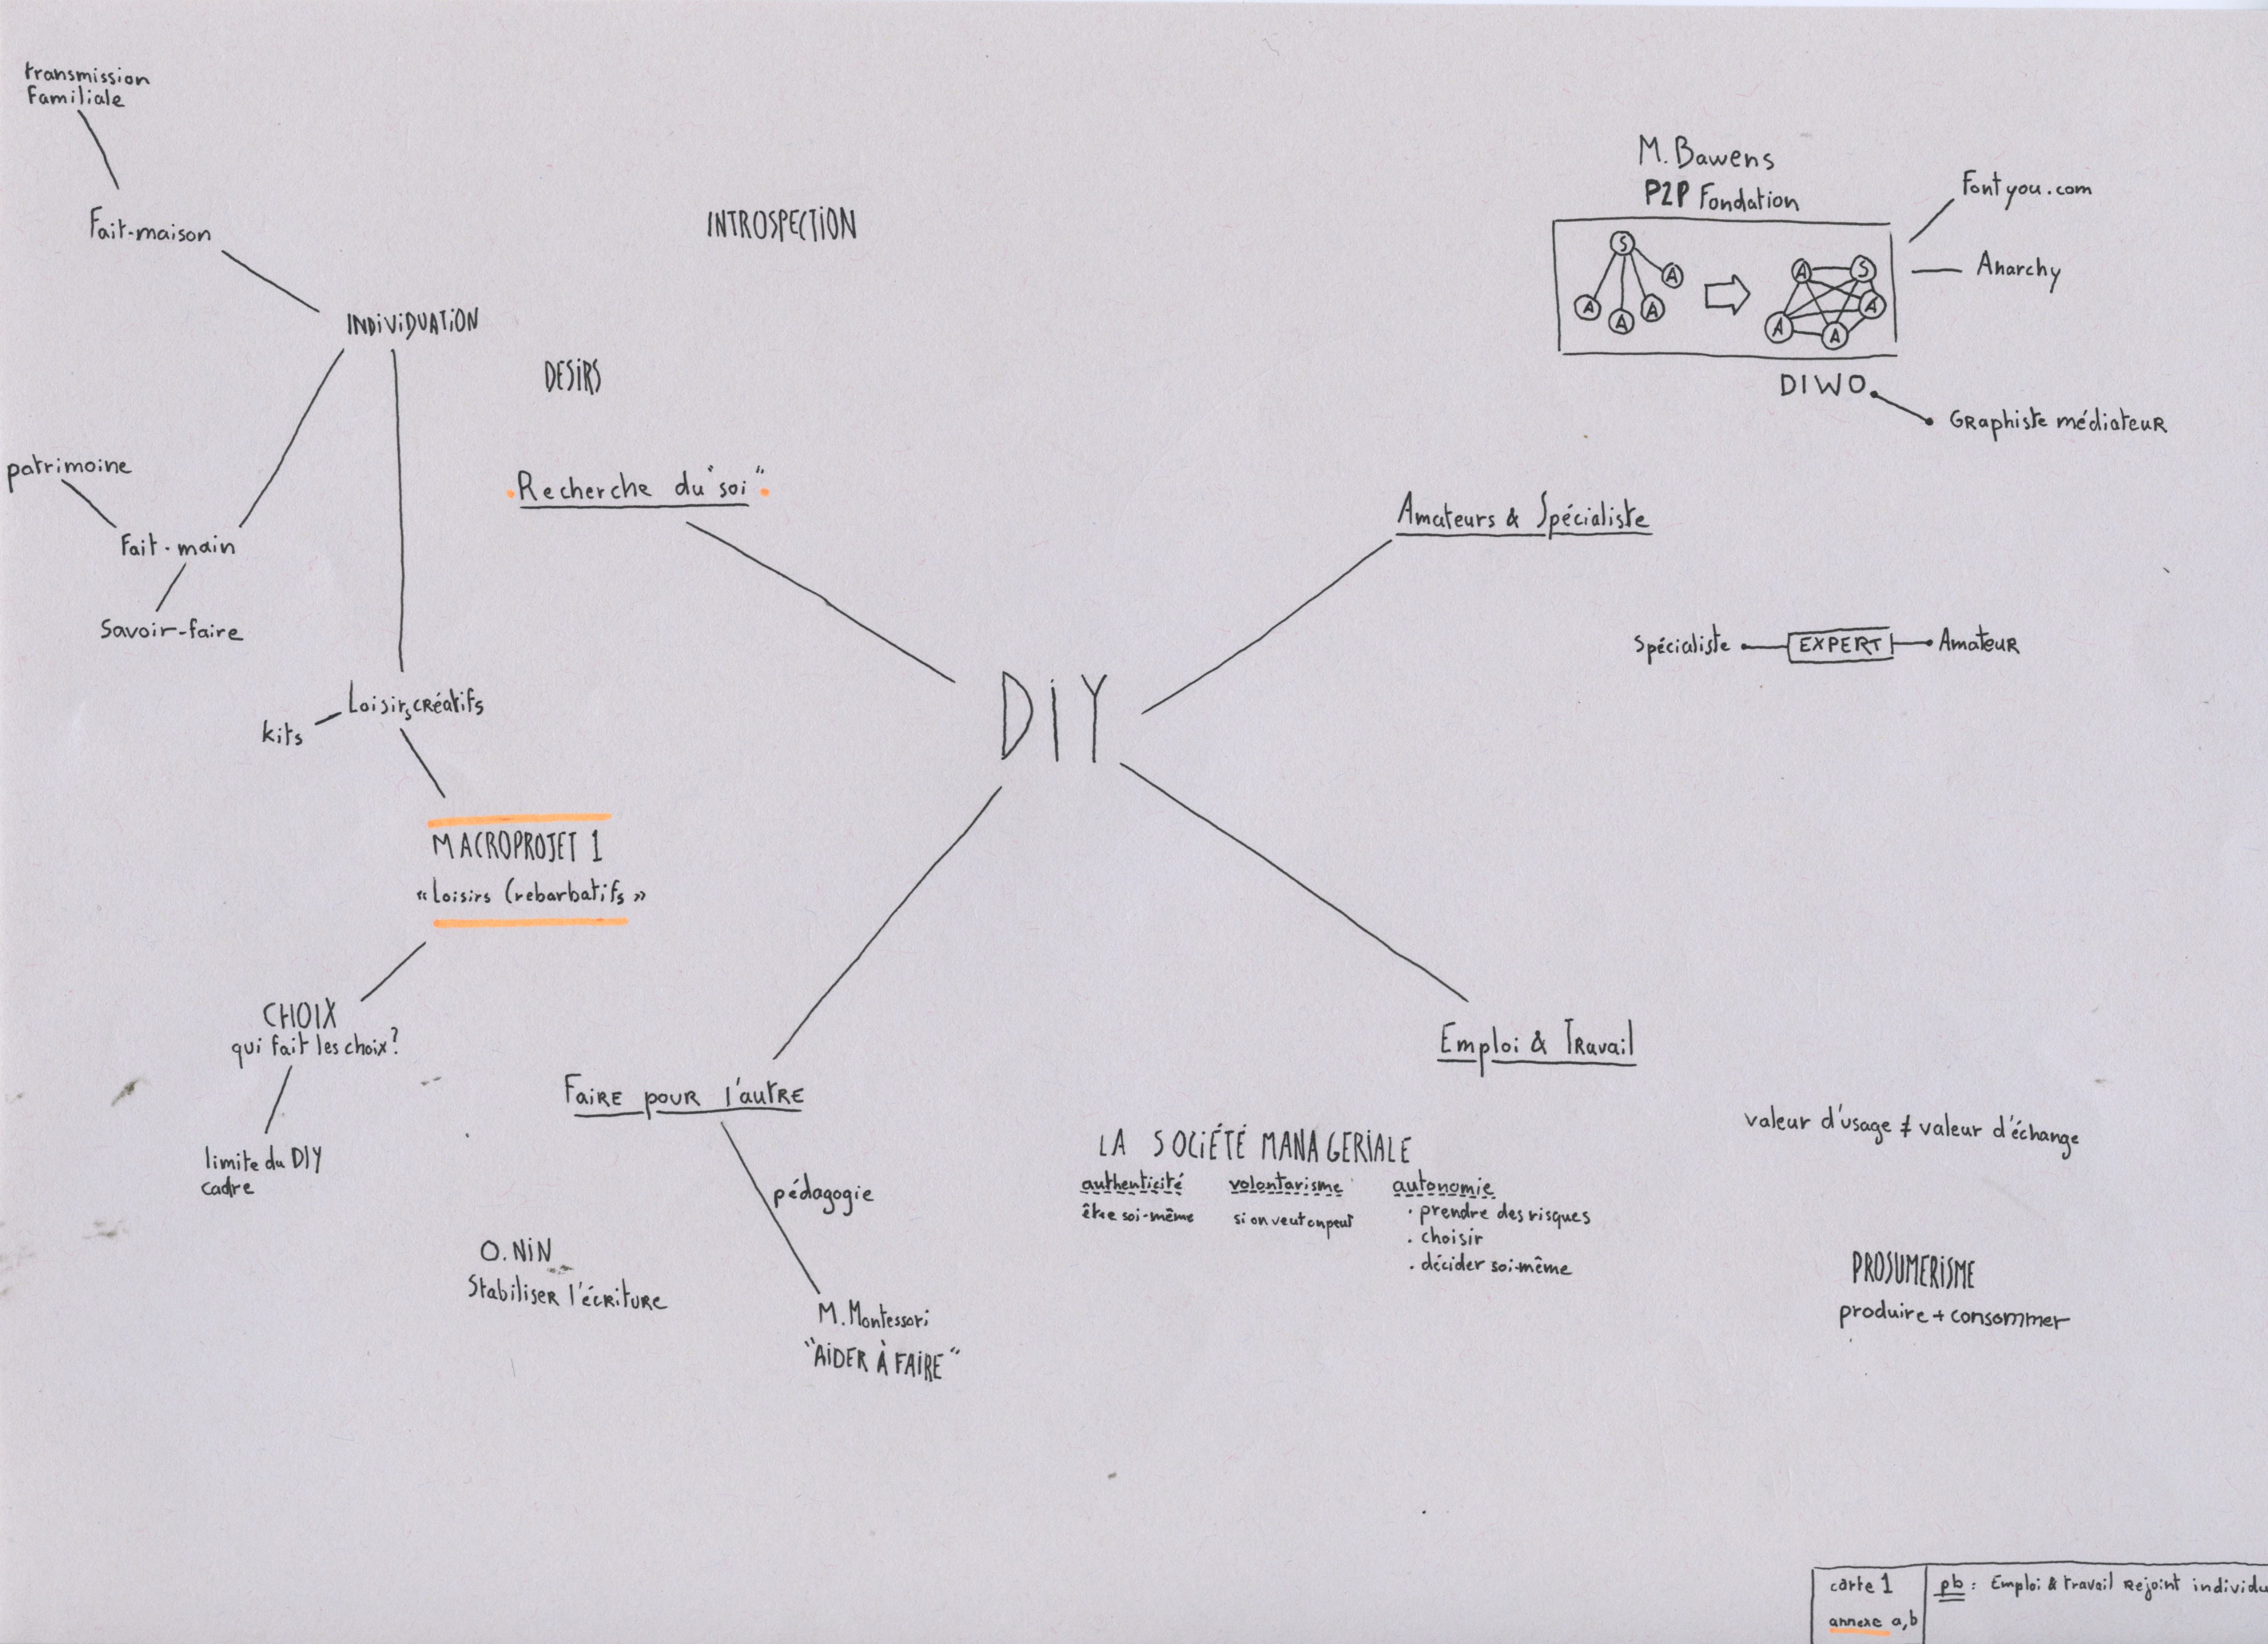 transmission
Familiale
Fait-maison
INDIVIDUATION
INTROSPECTION
DESIRS
Recherche du "soi"
patrimoine
Fait-main
Savoir-faire
Loisirs créatifs
kits
MACROPROJET 1
«Loisirs Crebarbatifs»
CHOIX
qui fait les choix?
limite du DIY
cadre
DIY
M. Bawens
P2P Fondation
S
A
A
A
A
A
S
A
A
A
Fontyou.com
Anarchy
DIWO
Graphiste médiateur
Amateurs & Spécialiste
Spécialiste EXPERT Amateur
Faire pour l'autre
pédagogie
O. NIN
Stabiliser l'écriture
M. Montessori
"AIDER À FAIRE"
Emploi & Travail
LA SOCIÉTÉ MANAGERIALE
authenticité volontarisme autonomie
être soi-même si on veut on peut · prendre des risques
· choisir
· décider soi-même
valeur d'usage ≠ valeur d'échange
PROSUMERISME
produire + consommer
carte 1
annexe a,b
pb : Emploi & travail rejoint individu